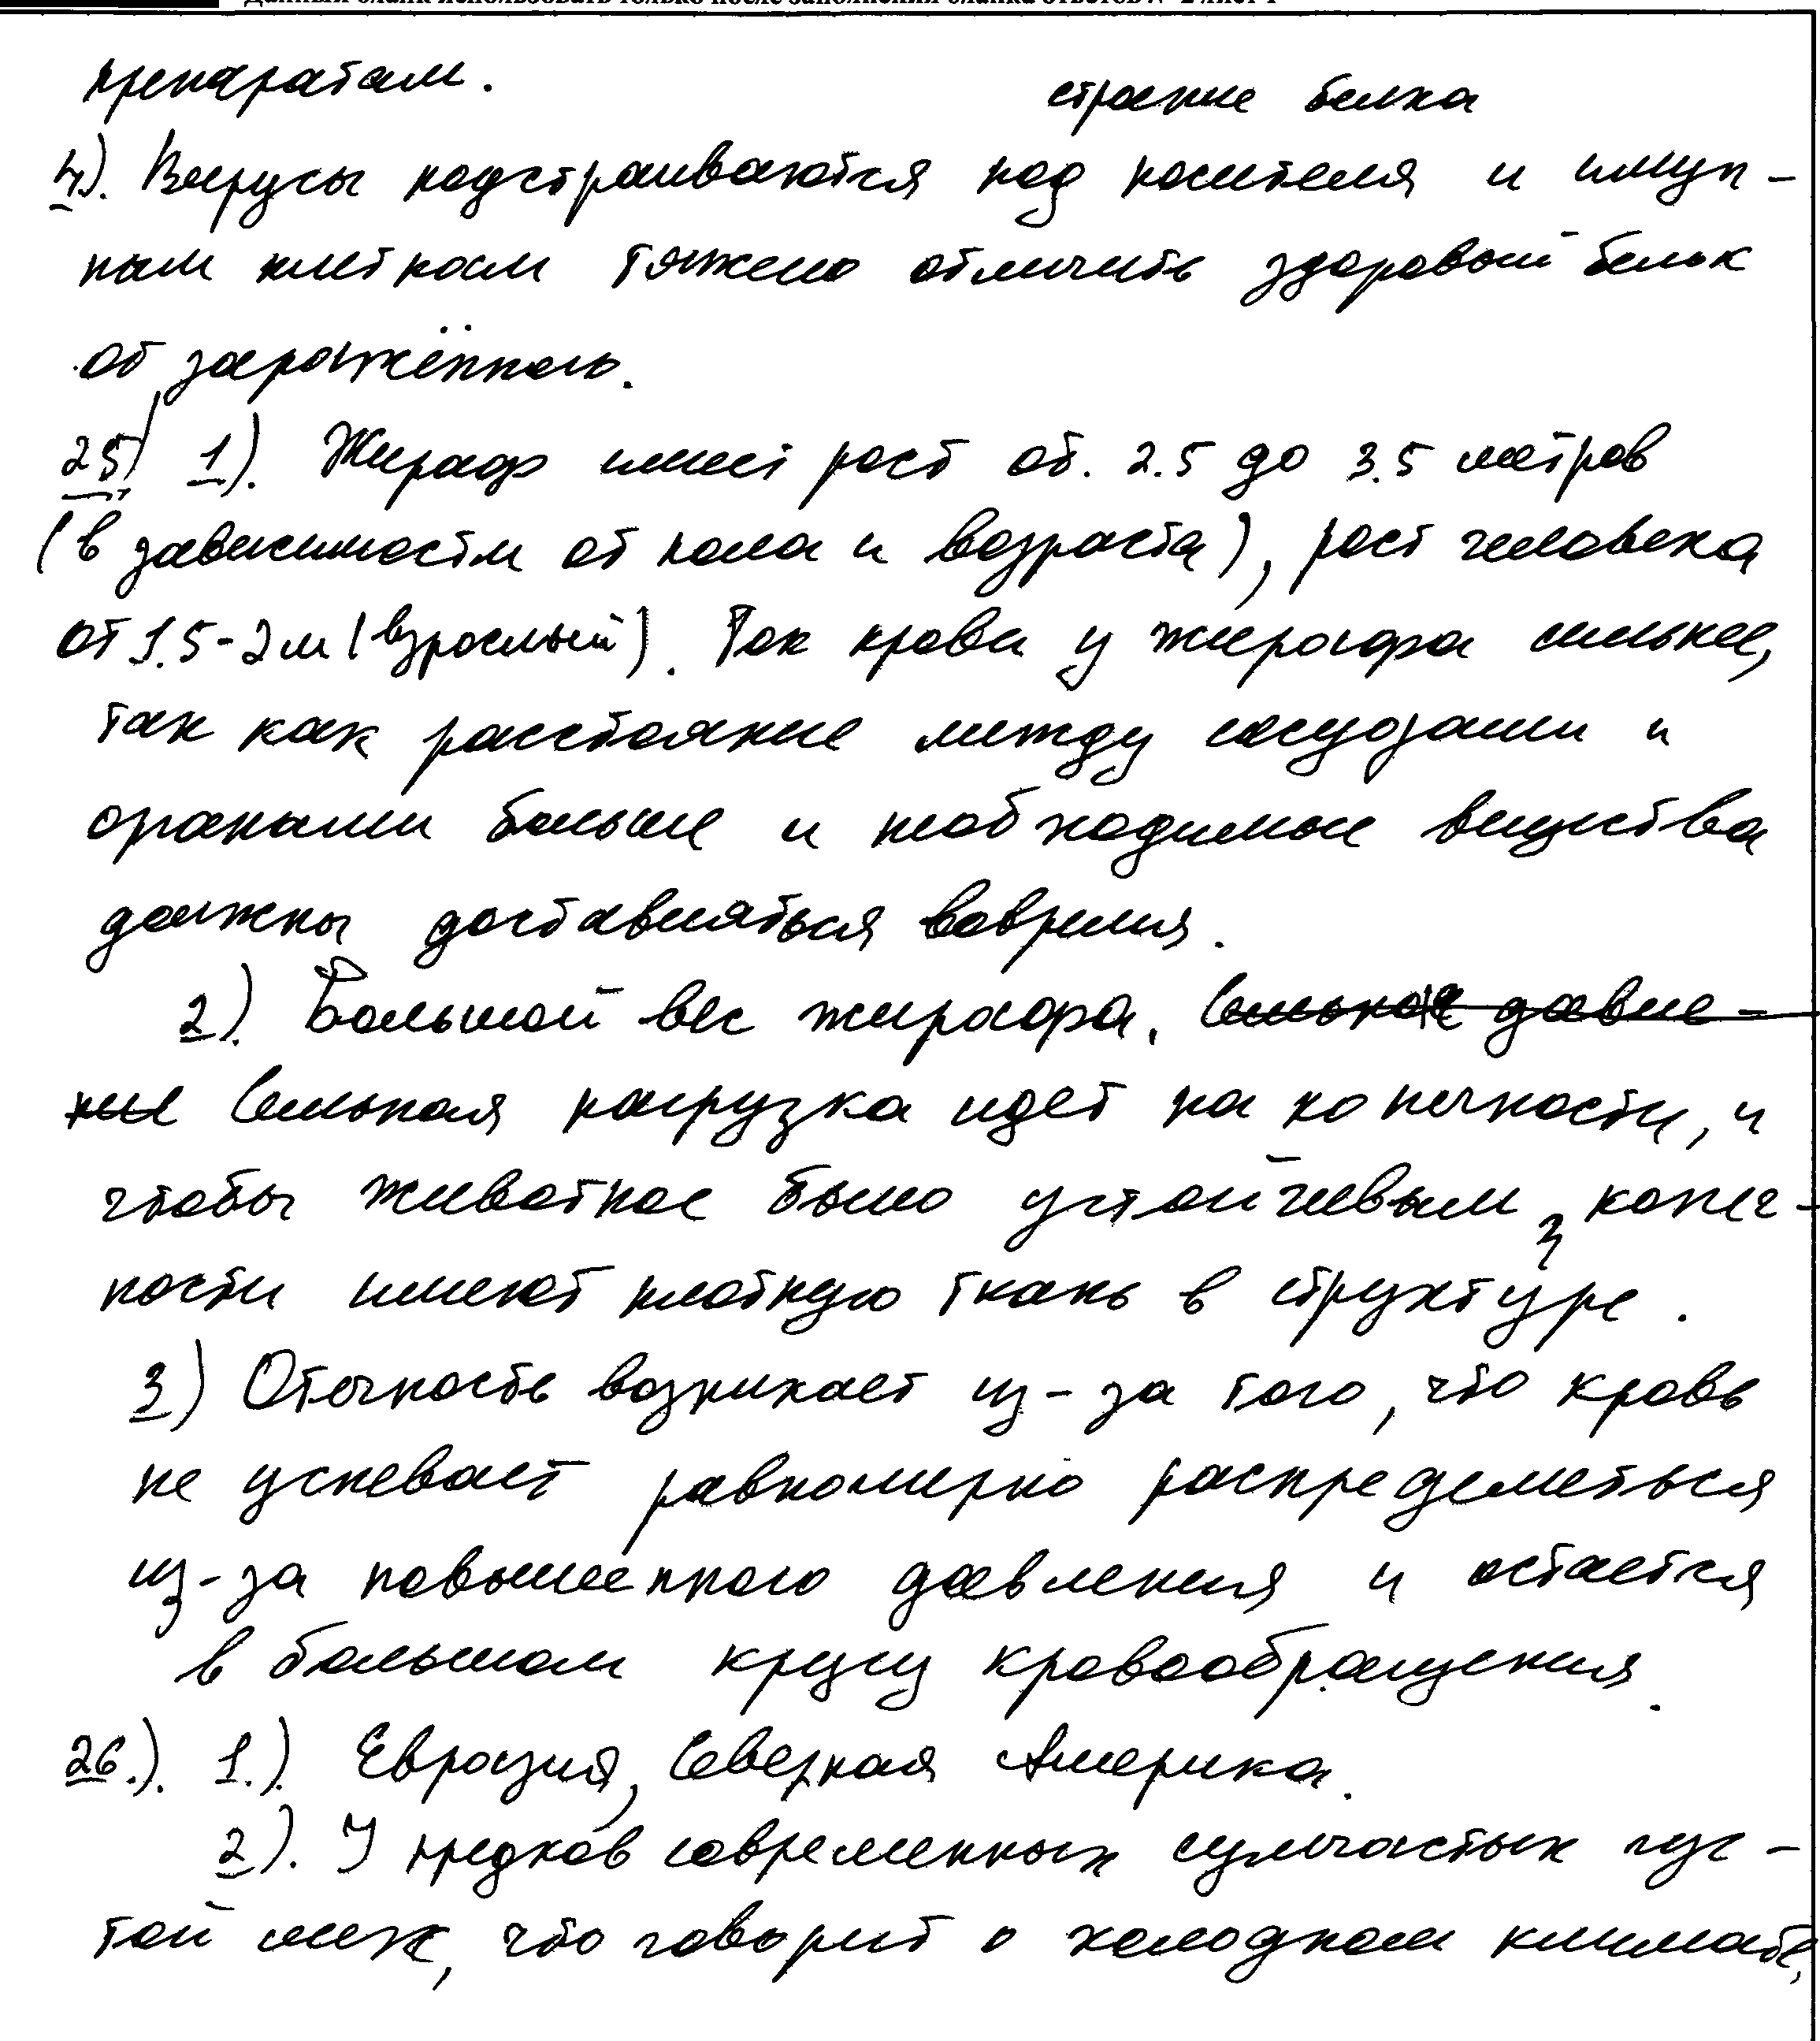 Данный бланк использовать только после заполнения бланка ответов № 2 лист 1
препаратам.
строение белка
4). Вирусы подстраиваются под носителя и имун-
ным клеткам тяжело отличить здоровый белок
от заражённого.
25) 1). Жираф имеет рост от. 2.5 до 3.5 метров
(в зависимости от пола и возраста), рост человека
от 1.5-2 м (взрослый). Ток крови у жирафа сильнее,
так как расстояние между сосудами и
органами больше и необходимые вещества
должны доставляться вовремя.
2). Большой вес жирафа. Сильное давле-
ние Сильная нагрузка идет на конечности, и
чтобы животное было устойчивым, конеч-
ности имеют плотную ткань в структуре.
3) Отечность возникает из-за того, что кровь
не успевает равномерно распределиться
из-за повышенного давления и остается
в большом кругу кровообращения.
26.). 1.). Евразия, Северная Америка.
2). У предков современных сумчастых гус-
той мех, что говорит о холодном климате,